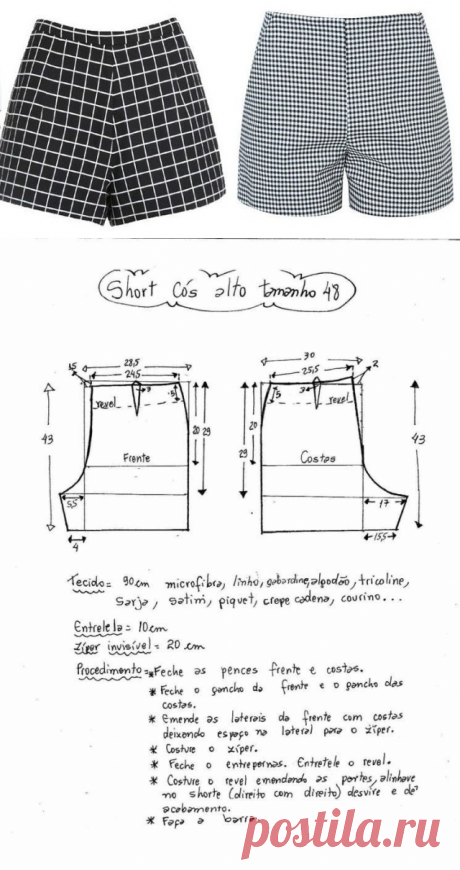 Short cós alto tamanho 48
28,5
24,5
1,5
3
5
revel
Frente
20
29
43
5,5
4
30
25,5
2
3
5
revel
Costas
20
29
43
17
15,5
Tecido = 90cm microfibra, linho, gabardine, algodão, tricoline,
sarja, setim, piquet, crepe cadena, courino...
Entretela = 10cm
Zíper invisível = 20 cm
Procedimento = * Feche as pences frente e costas.
* Feche o gancho da frente e o gancho das
costas.
* Emende as laterais da frente com costas
deixando espaço na lateral para o zíper.
* Costure o zíper.
* Feche o entrepernas. Entretele o revel.
* Costure o revel emendando as partes, alinhave
no shorte (direito com direito) desvire e dê
acabamento.
* Faça a barra.
postila.ru